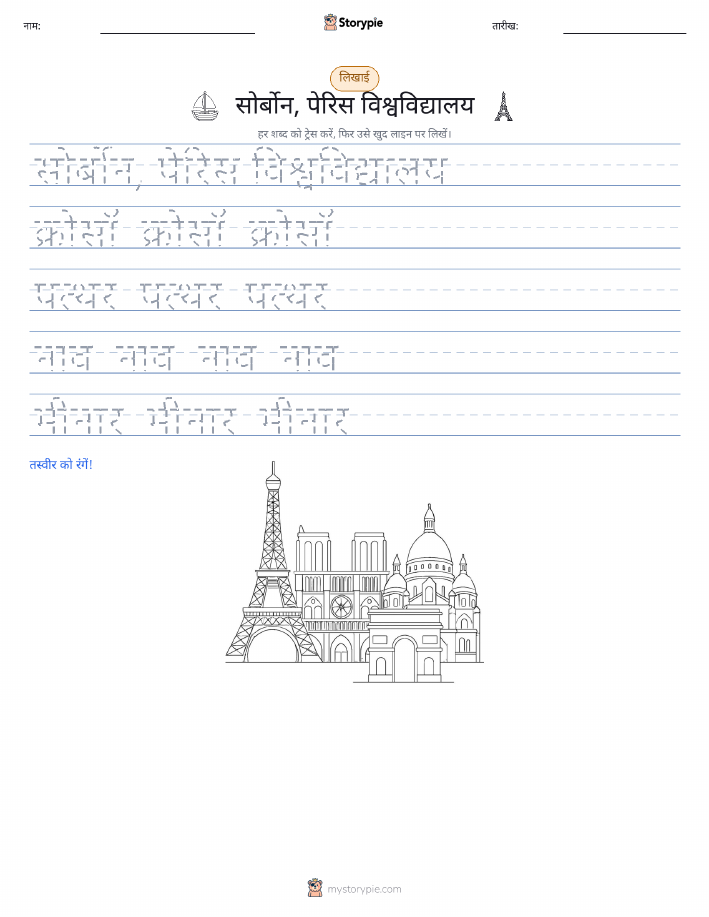 नाम:
Storypie
तारीख:
लिखाई
सोर्बोन, पेरिस विश्वविद्यालय
हर शब्द को ट्रेस करें, फिर उसे खुद लाइन पर लिखें।
सोर्बोन, पेरिस विश्वविद्यालय
क्रोसाँ क्रोसाँ क्रोसाँ
पत्थर पत्थर पत्थर
नाव नाव नाव नाव
मीनार मीनार मीनार
तस्वीर को रंगें!
mystorypie.com